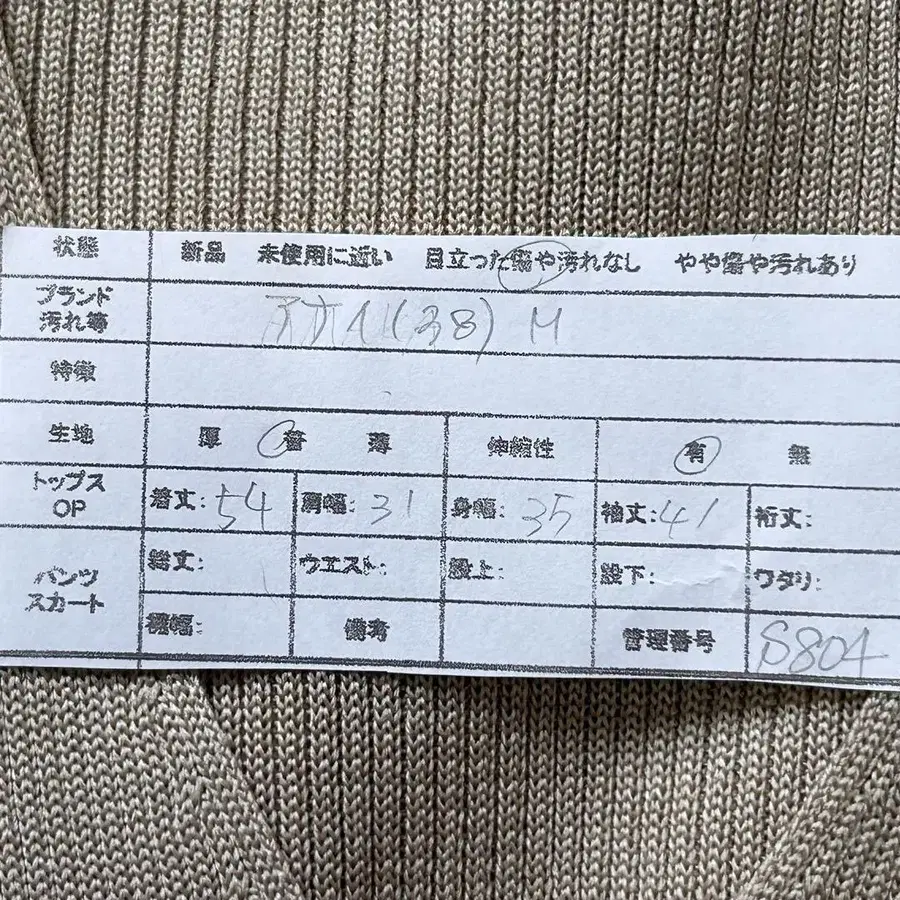 状態 新品 未使用に近い 目立った傷や汚れなし やや傷や汚れあり
ブランド
汚れ等
(38) M
特徴
生地 厚 普 薄 伸縮性 有 無
トップス
OP
着丈:54 肩幅:31 身幅:35 袖丈:41 裄丈:
パンツ
スカート
総丈: ウエスト: 股上: 股下: ワタリ:
裾幅: 備考 管理番号 S804